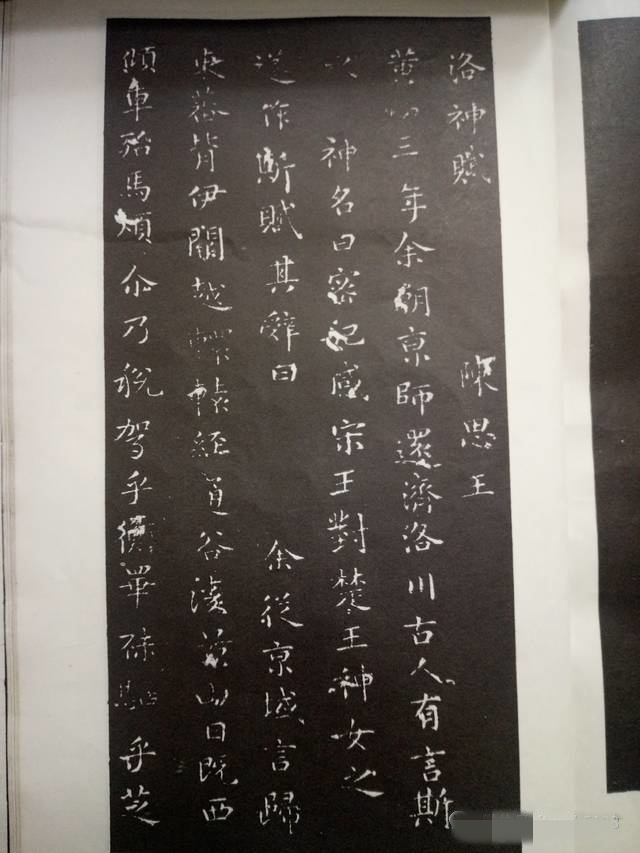 洛神賦 陳思王
黃初三年余朝京師還濟洛川古人有言斯
水 神名曰密妃感宋王對楚王神女之
遂作斯賦其辭曰 余從京域言歸
東藩背伊闕越轘轅經通谷陵景山日既西
傾車殆馬煩尒乃稅駕乎蘅皋秣駟乎芝